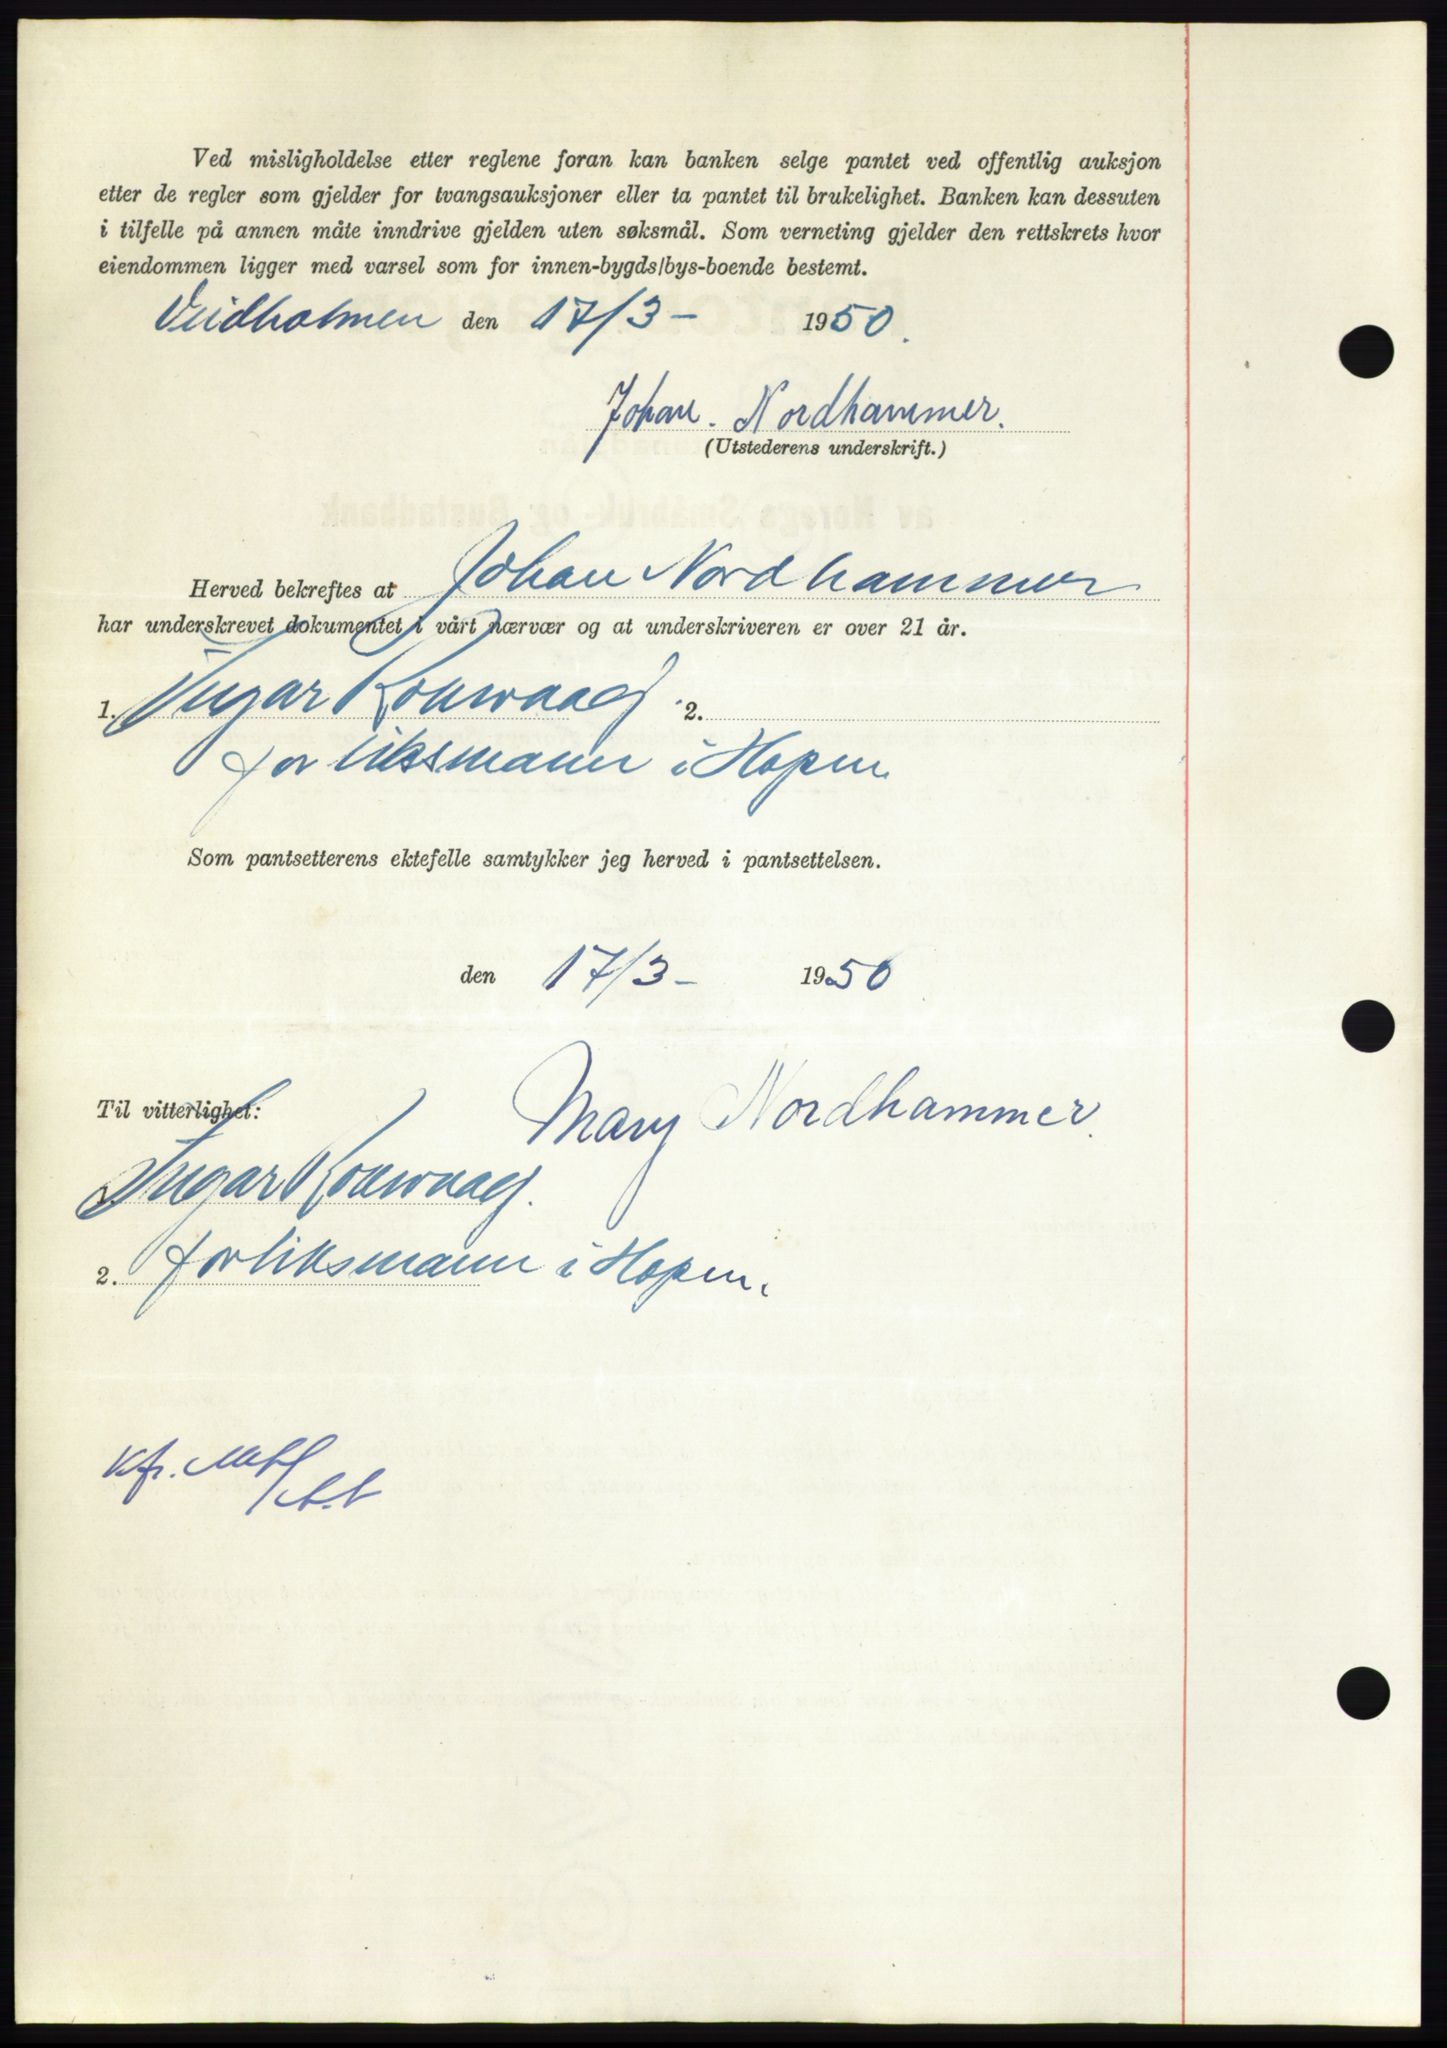 Ved misligholdelse etter reglene foran kan banken selge pantet ved offentlig auksjon
etter de regler som gjelder for tvangsauksjoner eller ta pantet til brukelighet. Banken kan dessuten
i tilfelle på annen måte inndrive gjelden uten søksmål. Som verneting gjelder den rettskrets hvor
eiendommen ligger med varsel som for innen-bygds/bys-boende bestemt.
Veidholmen den 17/3 - 1950.
Johan. Nordhammer.
(Utstederens underskrift.)
Herved bekreftes at Johan Nordhammer
har underskrevet dokumentet i vårt nærvær og at underskriveren er over 21 år.
1. Ingar 2.
forliksmann i Hopen
Som pantsetterens ektefelle samtykker jeg herved i pantsettelsen.
den 17/3 - 1950
Mary Nordhammer.
Til vitterlighet:
Ingar
2. forliksmann i Hopen.
Kfr.